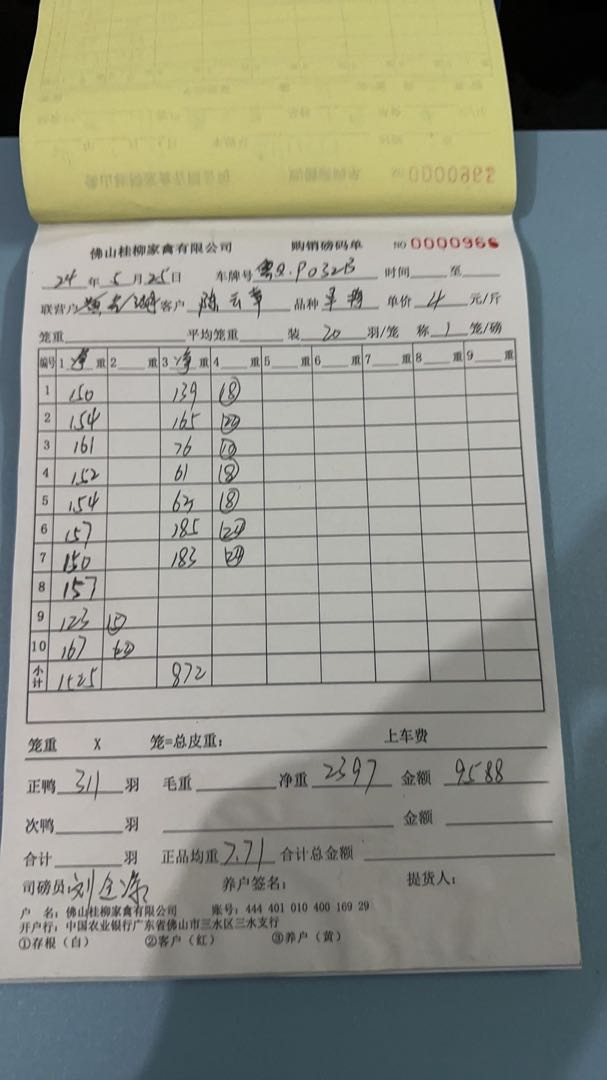 佛山桂柳家禽有限公司 购销磅码单 NO 0000966
24 年 5 月 25 日 车牌号 粤Q·P032B 时间 至
联营户 客户 陈云章 品种 单价 4 元/斤
笼重 平均笼重 装 20 羽/笼 称 1 笼/磅
编号 1 净 重 2 重 3 净 重 4 重 5 重 6 重 7 重 8 重 9 重
1 150 139 18
2 154 165
3 161 76
4 152 61 8
5 154 63 18
6 157 185
7 150 183
8 157
9 123 15
10 167
小计 1525 872
笼重 X 笼=总皮重: 上车费
正鸭 311 羽 毛重 净重 2397 金额 9588
次鸭 羽 金额
合计 羽 正品均重 7.71 合计总金额
司磅员: 刘 养户签名: 提货人:
户 名: 佛山桂柳家禽有限公司 账号: 444 401 010 400 169 29
开户行: 中国农业银行广东省佛山市三水区三水支行
①存根(白) ②客户(红) ③养户(黄)